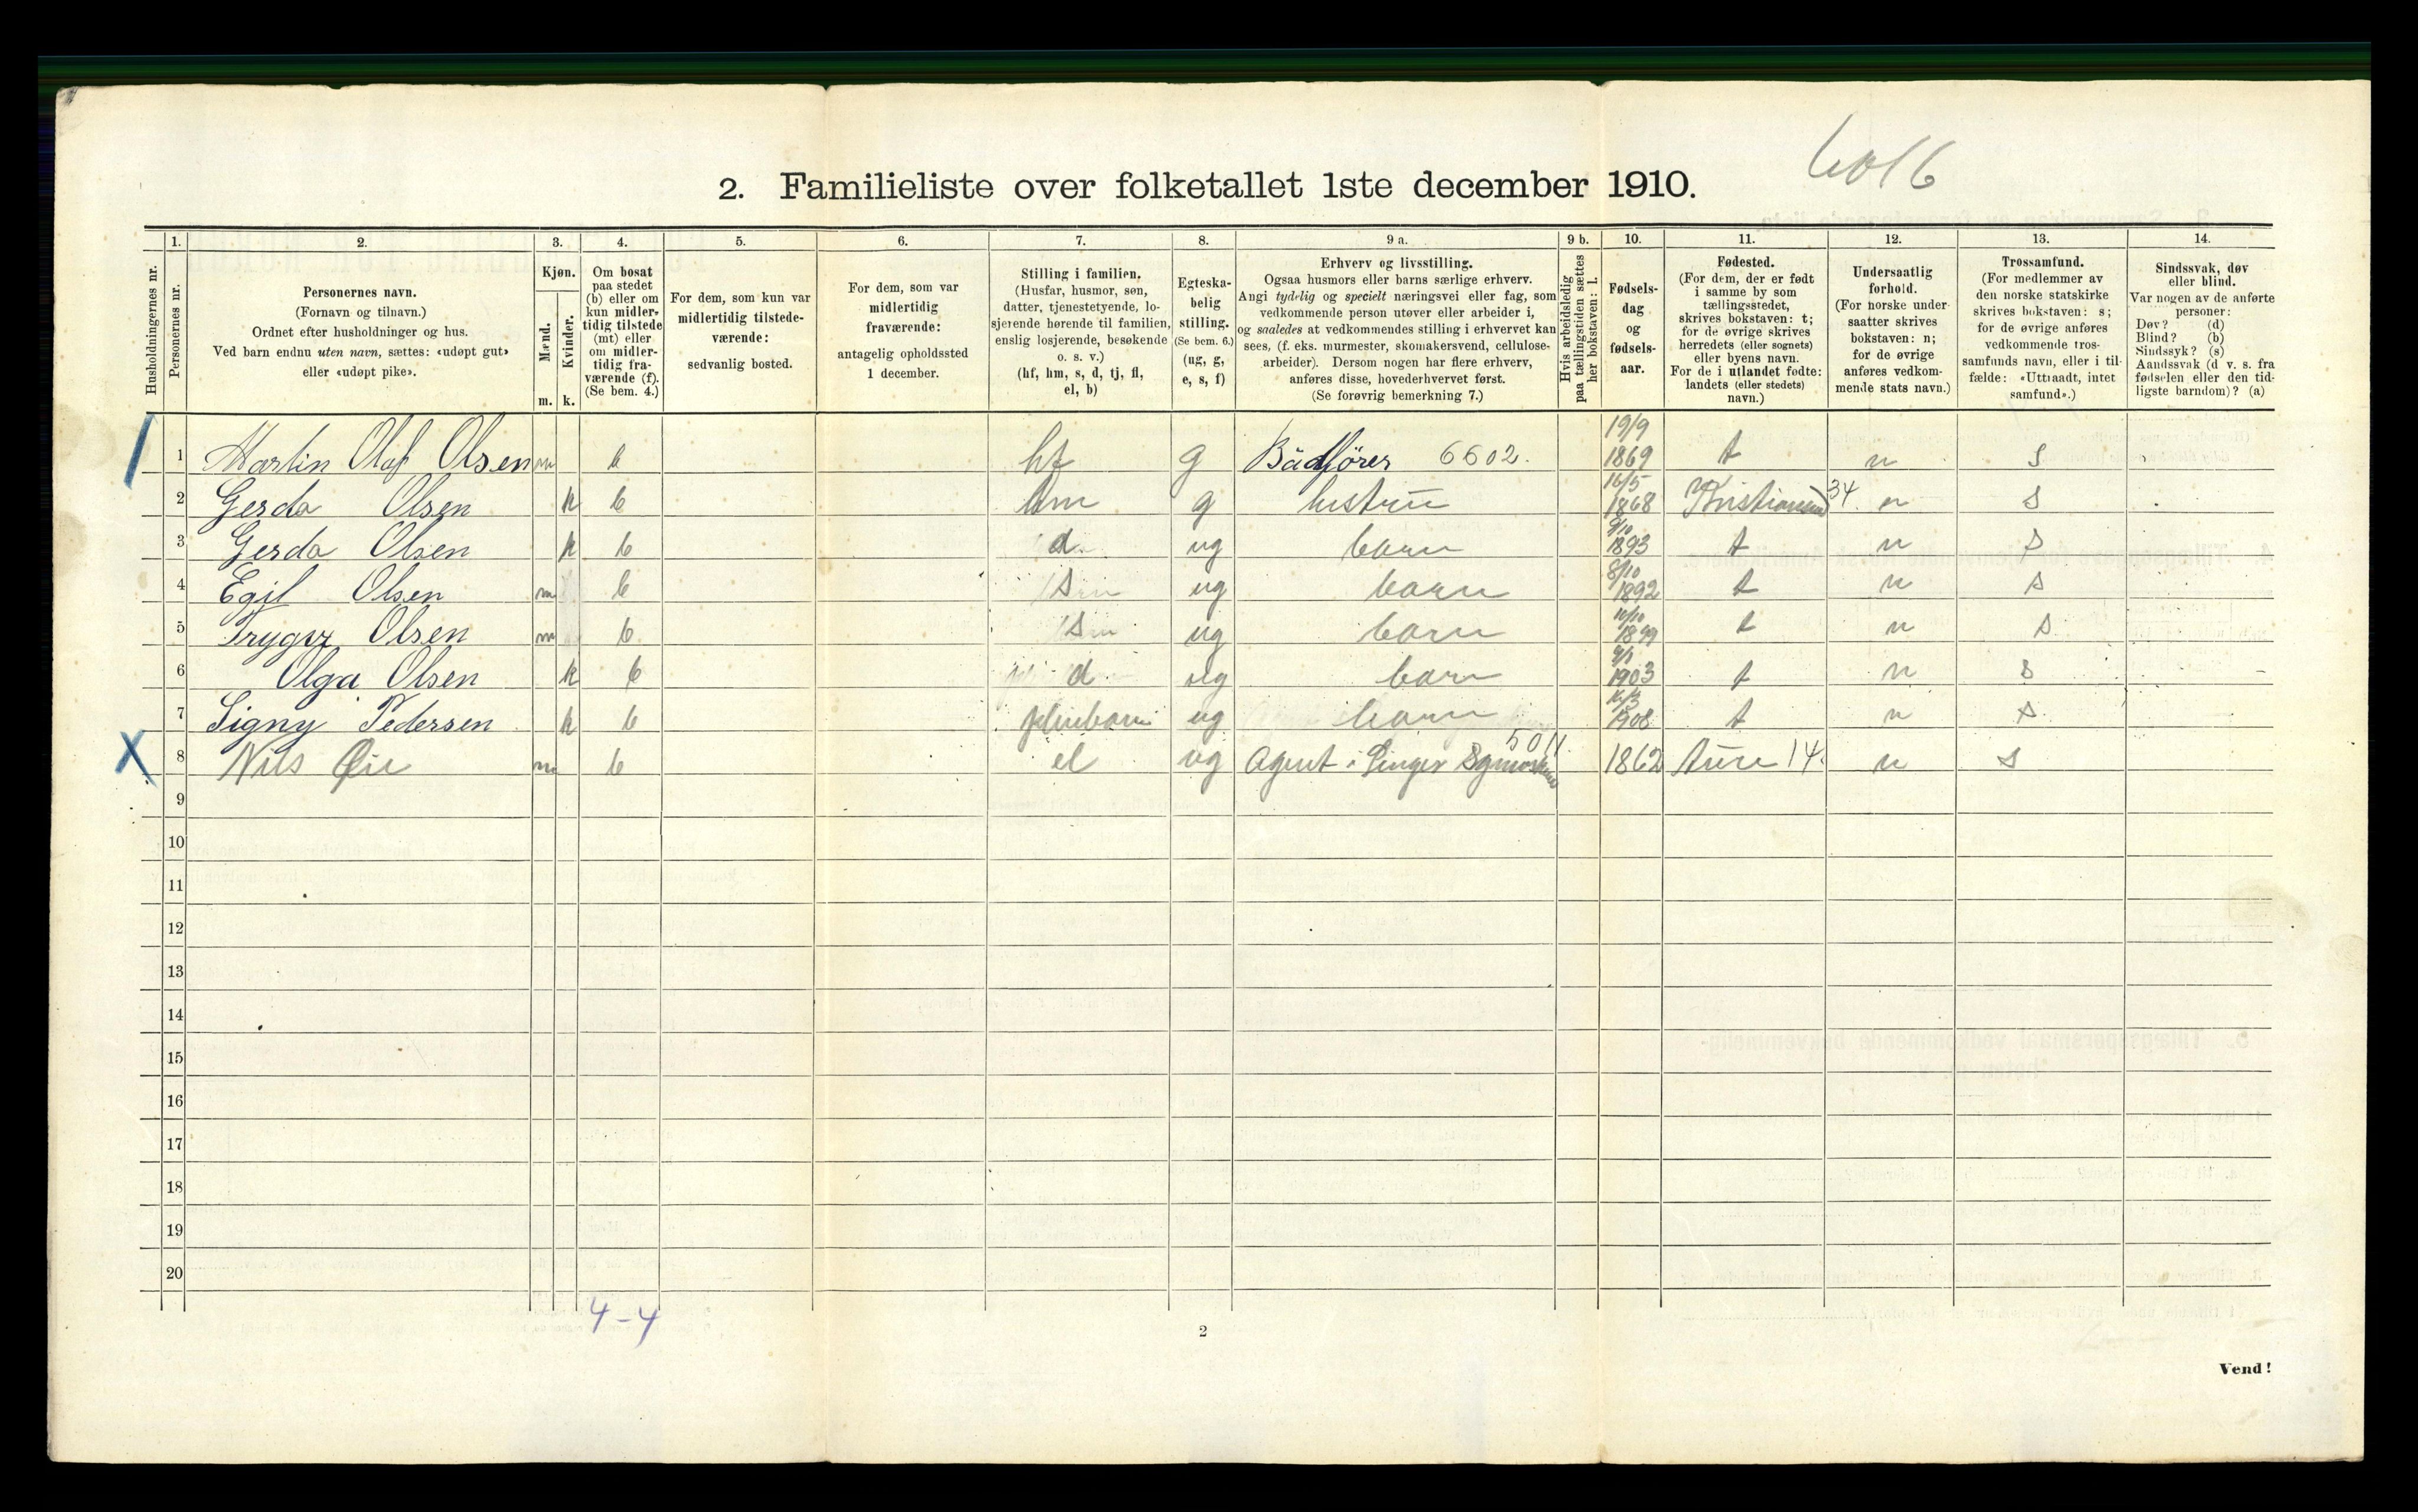 2. Familieliste over folketallet 1ste december 1910.
1. 2. 3. 4. 5. 6. 7. 8. 9 a. 9 b. 10. 11. 12. 13. 14.
Husholdningernes nr.
Personernes nr.
Personernes navn.
(Fornavn og tilnavn.)
Ordnet efter husholdninger og hus.
Ved barn endnu uten navn, sættes: «udøpt gut»
eller «udøpt pike».
Kjøn.
Mænd.
Kvinder.
m. k.
Om bosat
paa stedet
(b) eller om
kun midler-
tidig tilstede
(mt) eller
om midler-
tidig fra-
værende (f).
(Se bem. 4.)
For dem, som kun var
midlertidig tilstede-
værende:
sedvanlig bosted.
For dem, som var
midlertidig
fraværende:
antagelig opholdssted
1 december.
Stilling i familien.
(Husfar, husmor, søn,
datter, tjenestetyende, lo-
sjerende hørende til familien,
enslig losjerende, besøkende
o. s. v.)
(hf, hm, s, d, tj, fl,
el, b)
Egteska-
belig
stilling.
(Se bem. 6.)
(ug, g,
e, s, f)
Erhverv og livsstilling.
Ogsaa husmors eller barns særlige erhverv.
Angi tydelig og specielt næringsvei eller fag, som
vedkommende person utøver eller arbeider i,
og saaledes at vedkommendes stilling i erhvervet kan
sees, (f. eks. murmester, skomakersvend, cellulose-
arbeider). Dersom nogen har flere erhverv,
anføres disse, hovederhvervet først.
(Se forøvrig bemerkning 7.)
Hvis arbeidsledig
paa tællingstiden sættes
her bokstaven: l.
Fødsels-
dag
og
fødsels-
aar.
Fødested.
(For dem, der er født
i samme by som
tællingsstedet,
skrives bokstaven: t;
for de øvrige skrives
herredets (eller sognets)
eller byens navn.
For de i utlandet fødte:
landets (eller stedets)
navn.)
Undersaatlig
forhold.
(For norske under-
saatter skrives
bokstaven: n;
for de øvrige
anføres vedkom-
mende stats navn.)
Trossamfund.
(For medlemmer av
den norske statskirke
skrives bokstaven: s;
for de øvrige anføres
vedkommende tros-
samfunds navn, eller i til-
fælde: «Uttraadt, intet
samfund».)
Sindssvak, døv
eller blind.
Var nogen av de anførte
personer:
Døv? (d)
Blind? (b)
Sindssyk? (s)
Aandssvak (d. v. s. fra
fødselen eller den tid-
ligste barndom)? (a)
1 Martin Olaf Olsen m b hf g Bådfører 6602. 19/9 1869 t n s
2 Gerda Olsen k b hm g hustru 16/5 1868 Kristiansund 34. n s
3 Gerda Olsen k b d ug barn 9/10 1893 t n s
4 Egil Olsen m b s ug barn 8/10 1892 t n s
5 Trygve Olsen m b s ug barn 1899 t n s
6 Olga Olsen k b d ug barn 1903 t n s
7 Signy Pedersen k b pleiebarn ug barn 1908 t n s
8 Nils Øie m b el ug Agent i Singer Symaskiner 5011. 1862 Aure 14. n s
9
10
11
12
13
14
15
16
17
18
19
20
4-4
2
Vend!